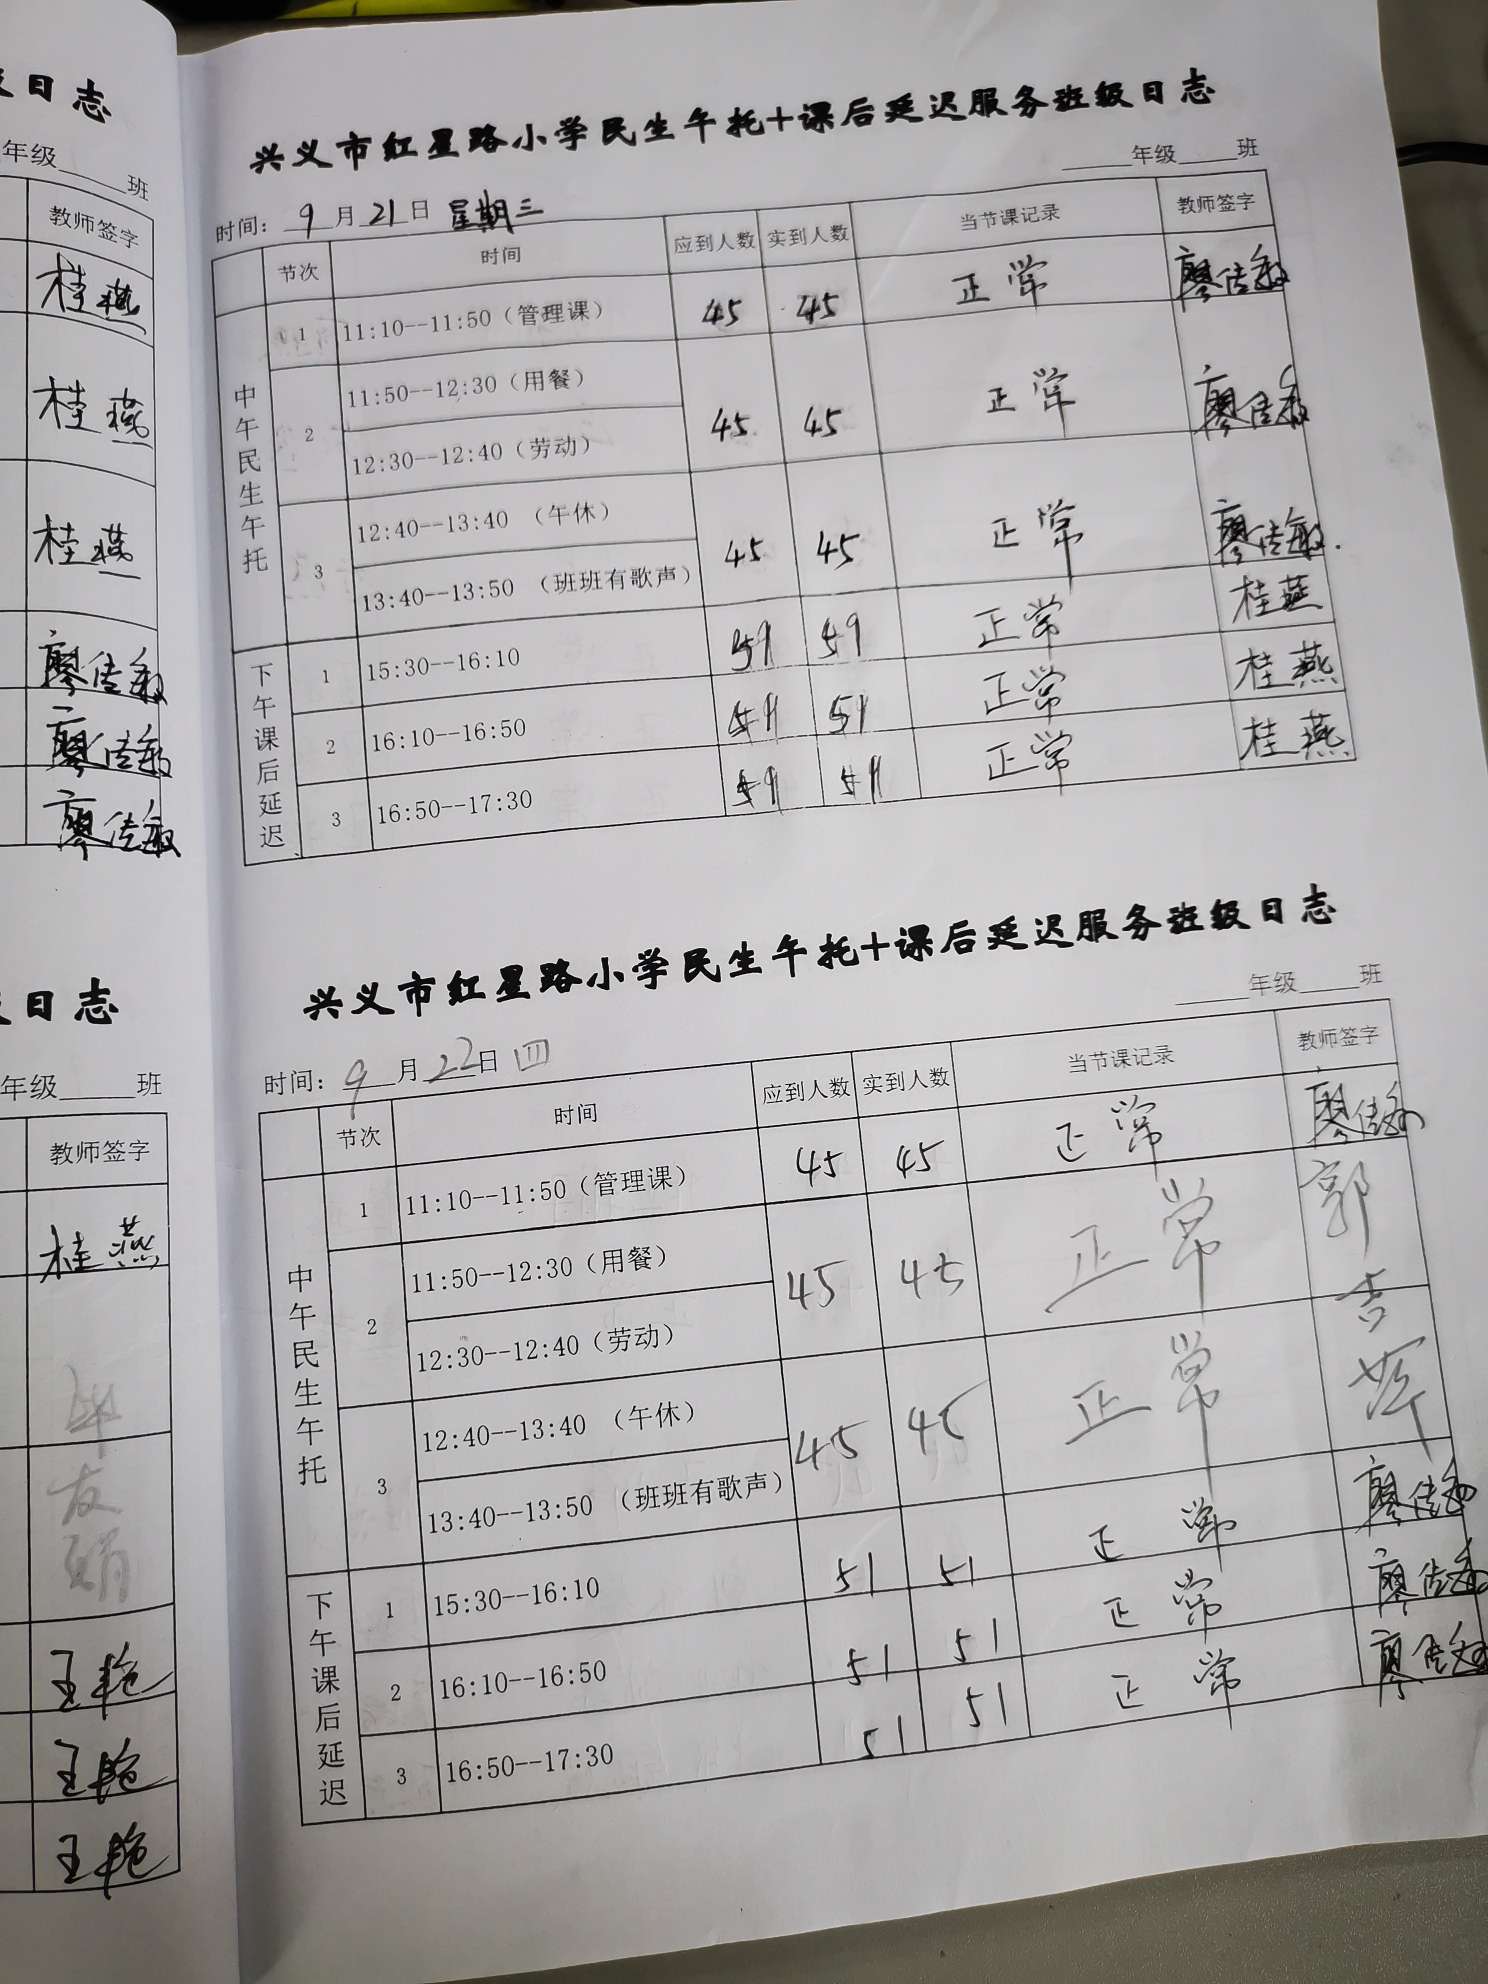 级日志
年级____班
教师签字
桂燕
桂燕
桂燕
兴义市红星路小学民生午托+课后延迟服务班级日志
____年级____班
时间：9月21日 星期三
节次 时间 应到人数 实到人数 当节课记录 教师签字
中午民生午托
1 11:10--11:50（管理课） 45 45 正常
2 11:50--12:30（用餐） 45 45 正常
12:30--12:40（劳动）
3 12:40--13:40（午休） 45 45 正常
13:40--13:50（班班有歌声）
下午课后延迟
1 15:30--16:10 正常 桂燕
2 16:10--16:50 正常 桂燕
3 16:50--17:30 正常 桂燕
级日志
年级____班
教师签字
桂燕
王艳
王艳
王艳
兴义市红星路小学民生午托+课后延迟服务班级日志
____年级____班
时间：9月22日 四
节次 时间 应到人数 实到人数 当节课记录 教师签字
中午民生午托
1 11:10--11:50（管理课） 45 45 正常
2 11:50--12:30（用餐） 45 45 正常
12:30--12:40（劳动）
3 12:40--13:40（午休） 45 45 正常
13:40--13:50（班班有歌声）
下午课后延迟
1 15:30--16:10 51 51 正常
2 16:10--16:50 51 51 正常
3 16:50--17:30 51 51 正常